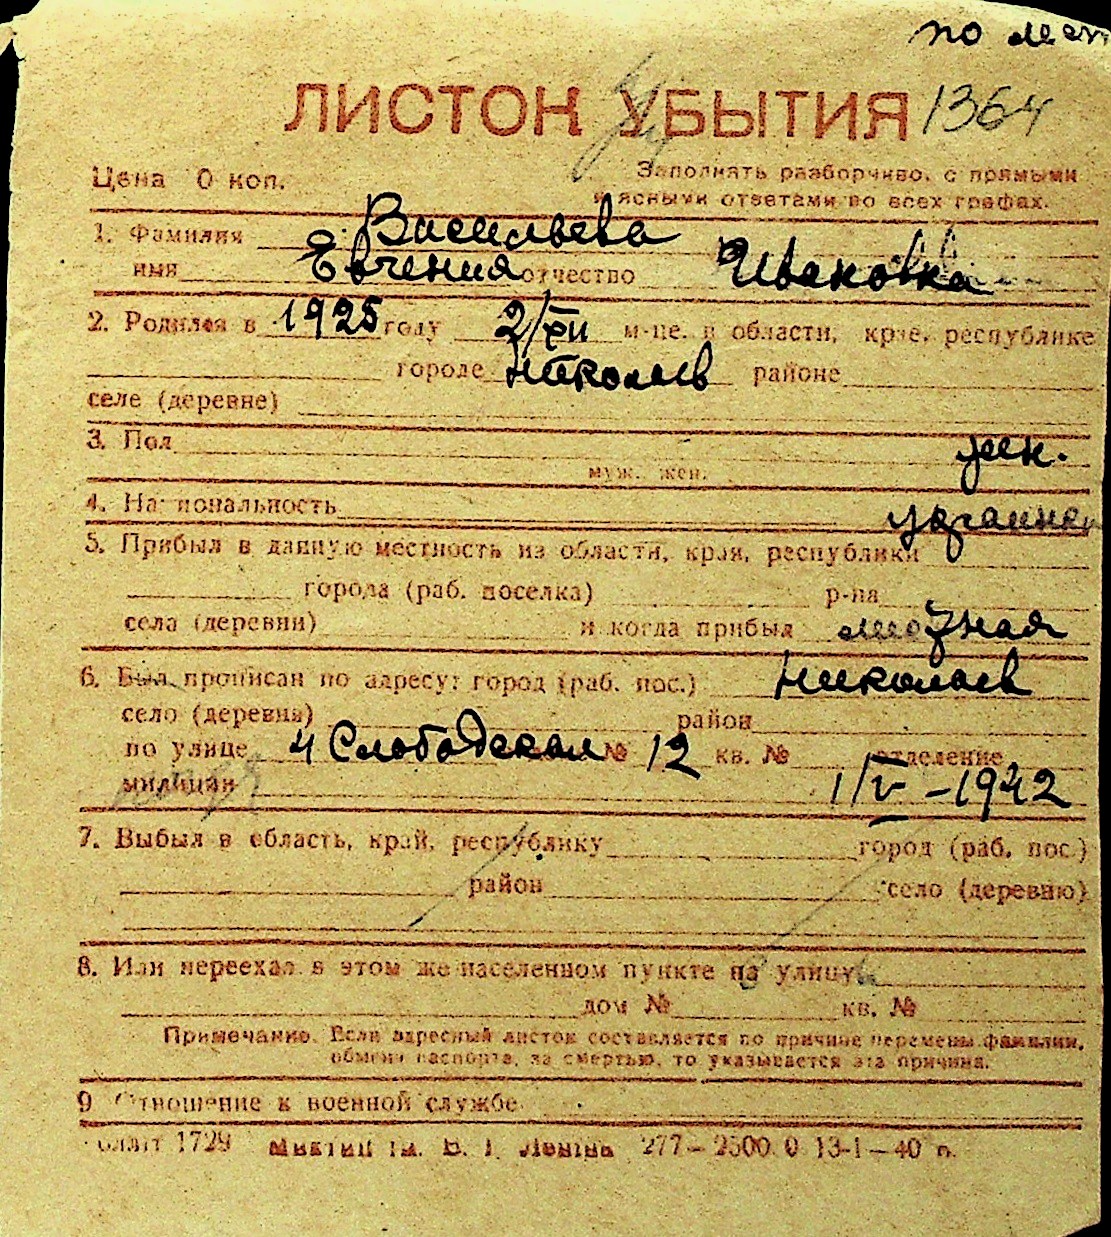 по мет
ЛИСТОК УБЫТИЯ 1364
Цена 0 коп.
Заполнять разборчиво, с прямыми
и ясными ответами во всех графах.
1. Фамилия Васильева
имя Евгения отчество Ивановна
2. Родился в 1925 году 2/XII м-це, в области, крае, республике
городе Николаев районе
селе (деревне)
3. Пол жен.
муж. жен.
4. Национальность
5. Прибыл в данную местность из области, края, республики
города (раб. поселка) р-на
села (деревни) и когда прибыл
6. Был прописан по адресу: город (раб. пос.) Николаев
село (деревня) район
по улице 4 Слободская № 12 кв. № отделение
милиции 1/V - 1942
7. Выбыл в область, край, республику город (раб. пос.)
район село (деревню)
8. Или переехал в этом же населенном пункте на улицу
дом № кв. №
Примечание. Если адресный листок составляется по причине перемены фамилии,
обмена паспорта, за смертью, то указывается эта причина.
9 Отношение к военной службе
1729 277 — 2500 0 13-1—40 п.